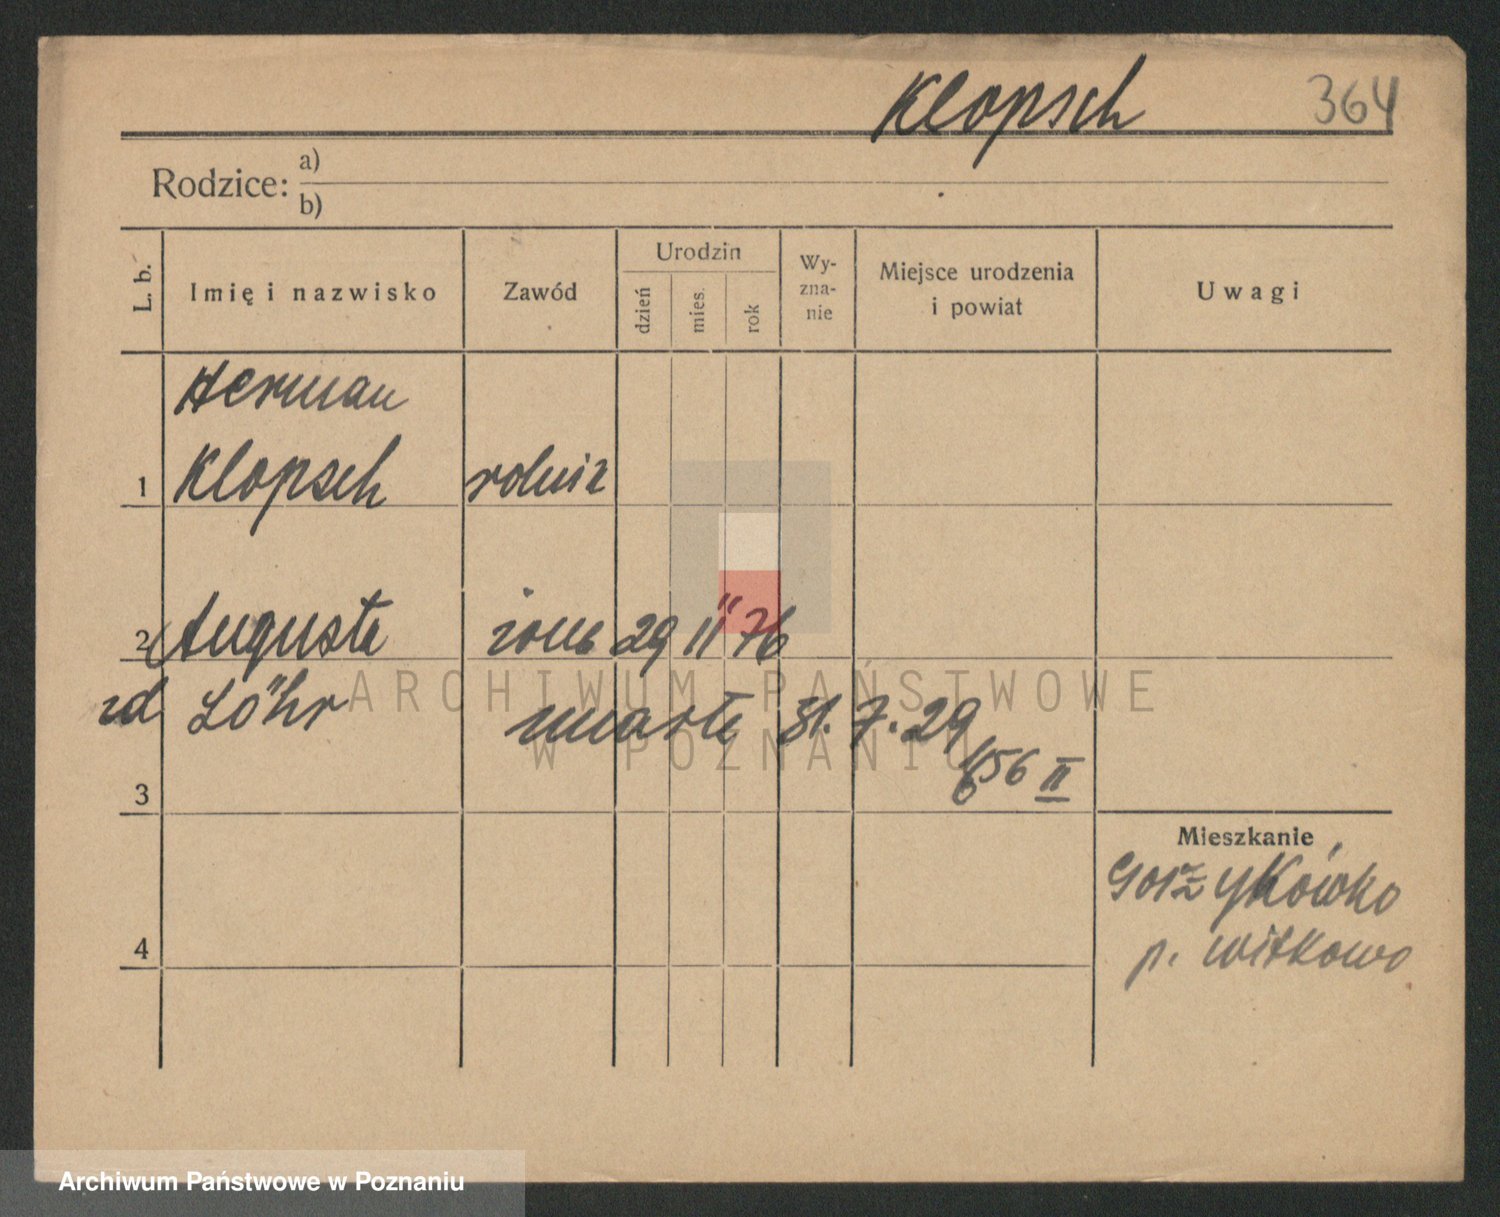 Klopsch 364
Rodzice: a)
b)
L. b.
Imię i nazwisko
Zawód
Urodzin
dzień
mies.
rok
Wy-
zna-
nie
Miejsce urodzenia
i powiat
Uwagi
Herman
1 Klopsch rolnik
2 Augusta żona 29 II 76
zd Löhr
zmarła 31. 7. 29
656 II
3
Mieszkanie
Gorzykówko
p. Witkowo
4
ARCHIWUM PAŃSTWOWE
W POZNANIU
Archiwum Państwowe w Poznaniu